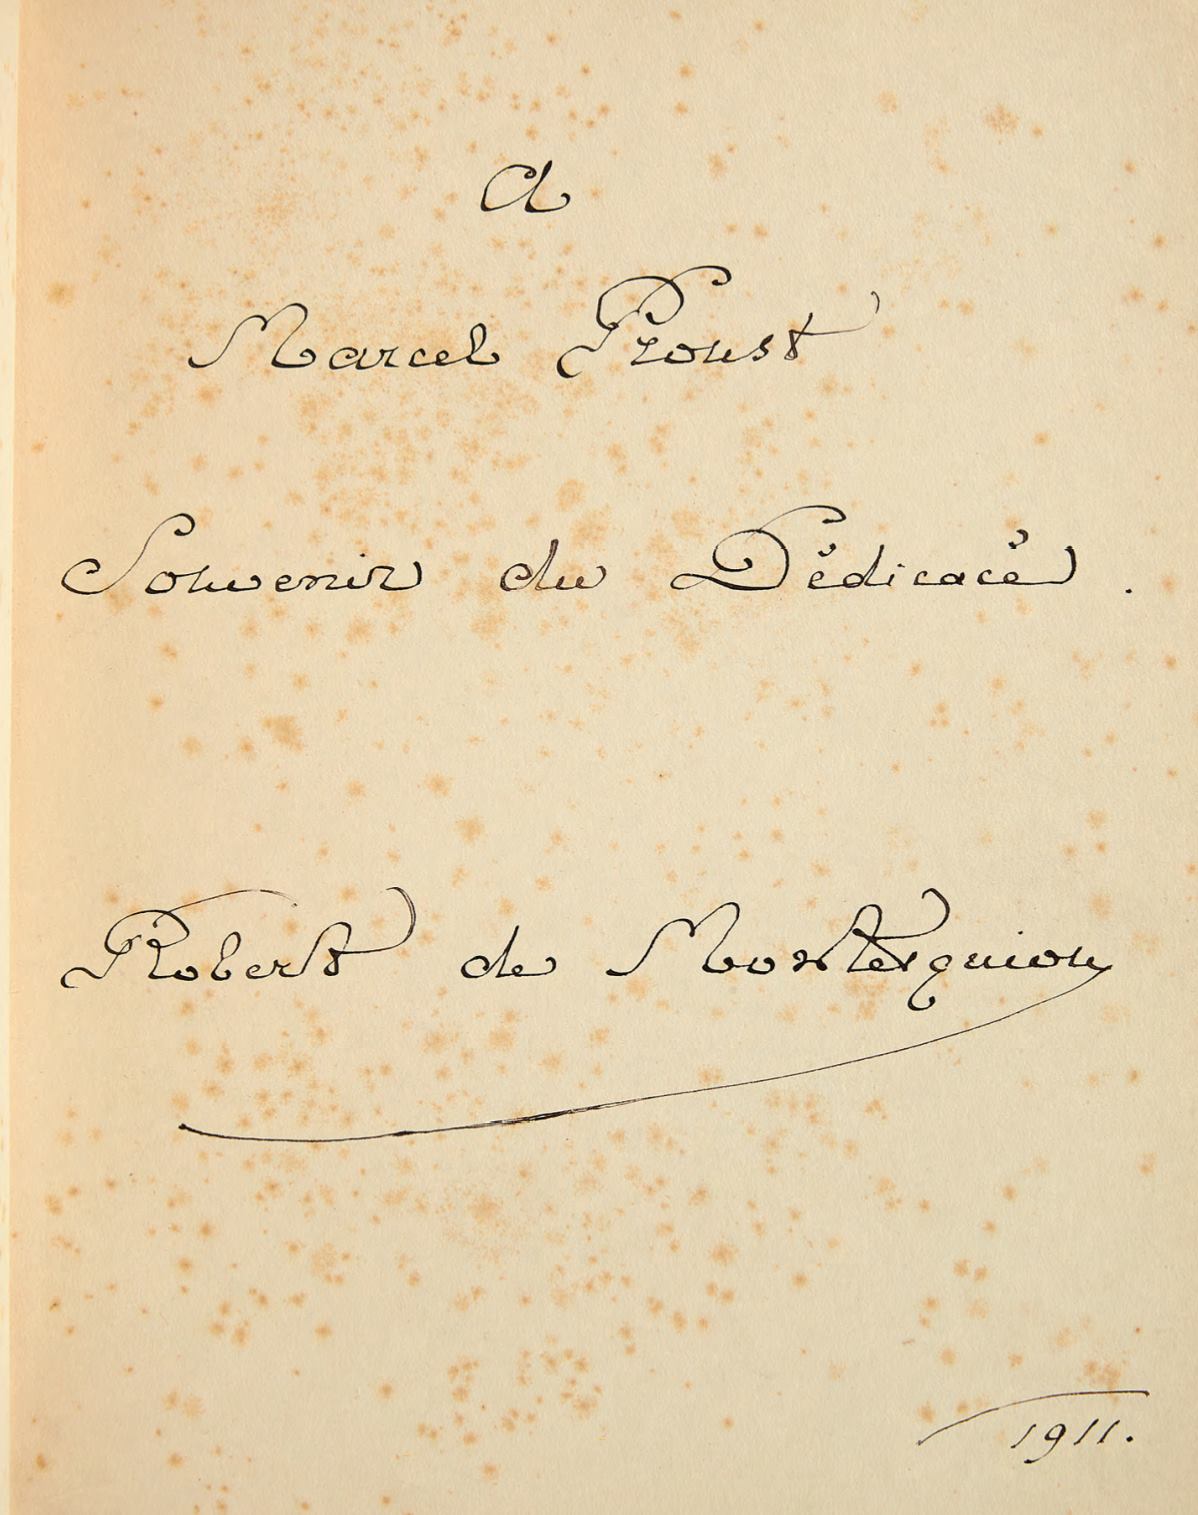 A
Marcel Proust
Souvenir du Dédicacé .
Robert de Montesquiou
1911.